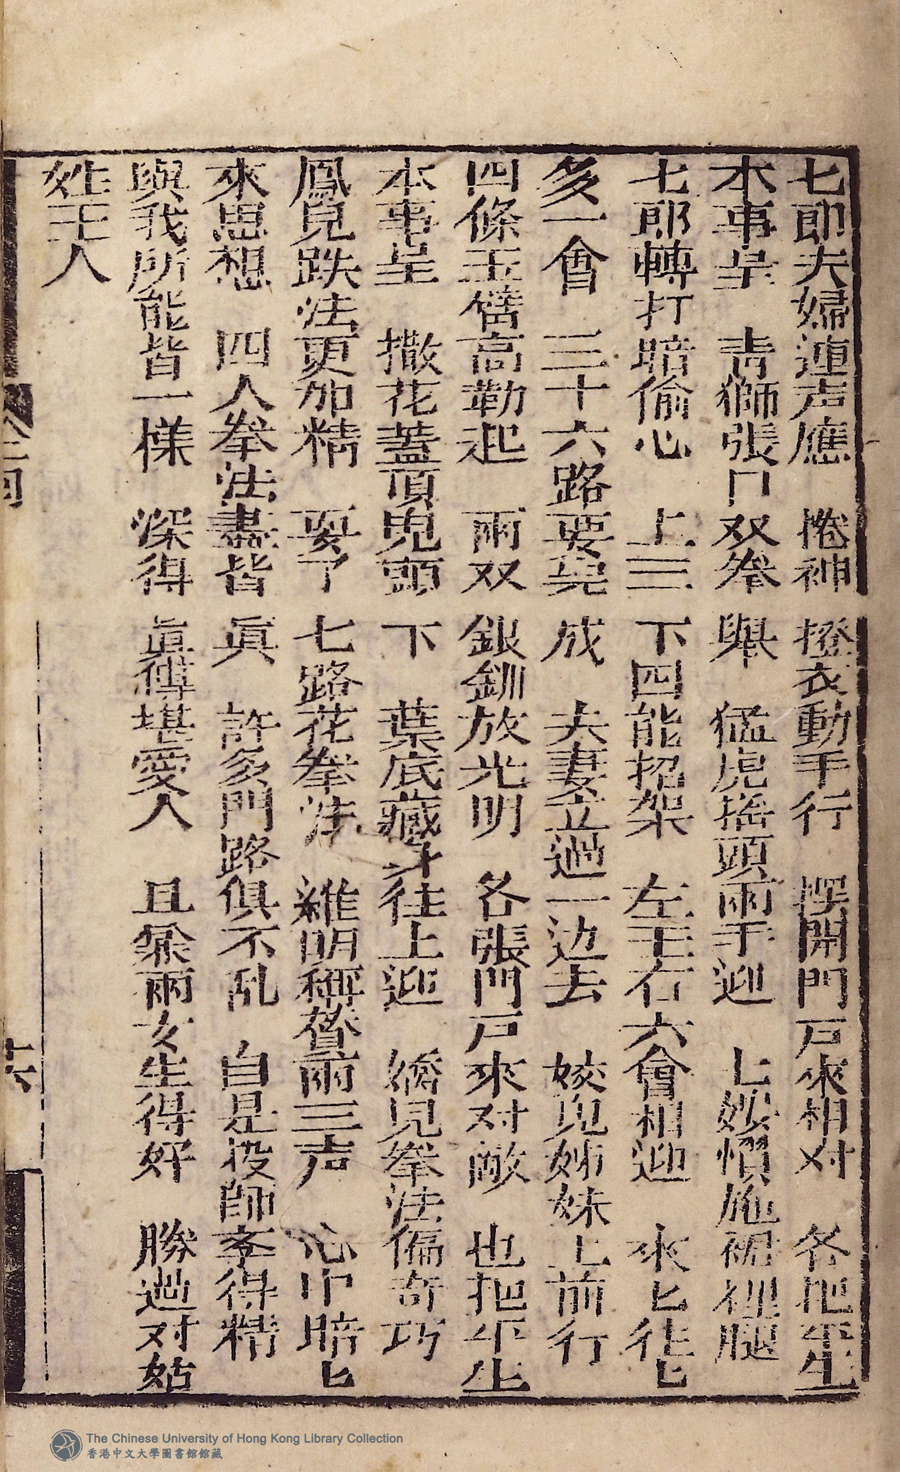 七郎夫婦連声應 捲神撜衣動手行 摆開門戸來相对 各把平生
本事呈 青獅張口双拳舉 猛虎摇頭兩手迎 七娘慣施裙裡腿
七郎轉打暗偷心 上三下四能招架 左王右六會相迎 來匕往匕
多一會 三十六路要完成 夫妻立過一边去 姣皃姊妹上前行
四條玉臂高勒起 兩双銀釧放光明 各張門戸來对敵 也把平生
本事呈 撒花蓋頂皃頭下 葉底藏身往上迎 嬌皃拳法偏奇巧
鳳皃跌法更加精 耍了七路花拳法 維明稱賛兩三声 心中暗匕
來思想 四人拳法盡皆眞 許多門路俱不乱 自是投師李得精
與我所能皆一様 深得眞傳堪愛人 且兼兩女生得好 勝過对姑
姓王人
十六
The Chinese University of Hong Kong Library Collection
香港中文大學圖書館館藏